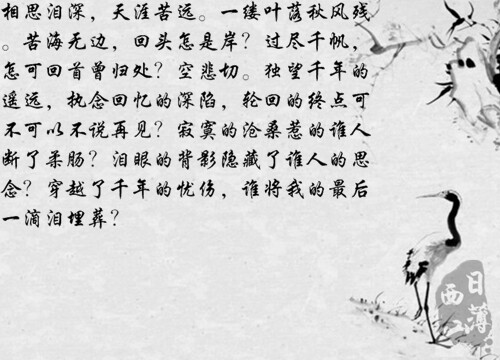 相思泪深，天涯苦远。一缕叶落秋风残
。苦海无边，回头怎是岸？过尽千帆，
怎可回首曾归处？空悲切。独望千年的
遥远，执念回忆的深陷，轮回的终点可
不可以不说再见？寂寞的沧桑惹的谁人
断了柔肠？泪眼的背影隐藏了谁人的思
念？穿越了千年的忧伤，谁将我的最后
一滴泪埋葬？
日薄
西